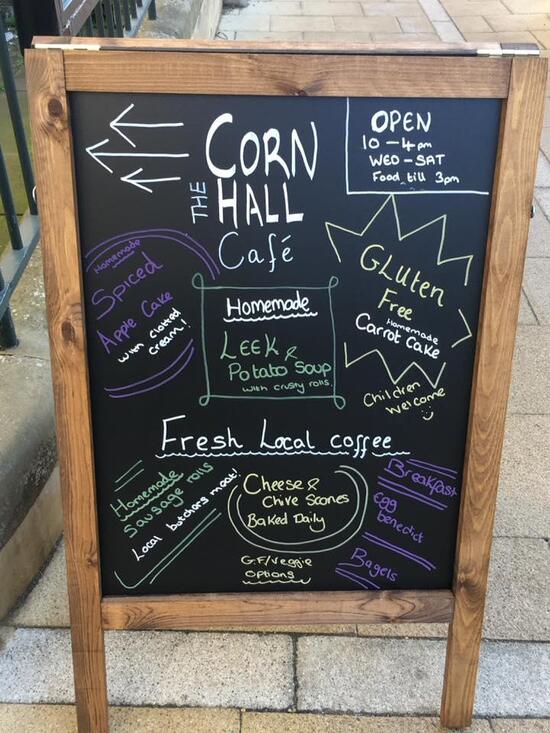 THE
CORN
HALL
Café
OPEN
10 - 4pm
WED - SAT
Food till 3pm
Homemade
Spiced
Apple Cake
with clotted
cream!
Homemade
LEEK &
Potato Soup
with crusty rolls.
GLuten
Free
Homemade
Carrot Cake
Children
welcome
Fresh Local coffee
Homemade
Sausage rolls
Local butchers meat!
Cheese &
Chive Scones
Baked Daily
G.F/Veggie
Options
Breakfast
Egg
benedict
Bagels